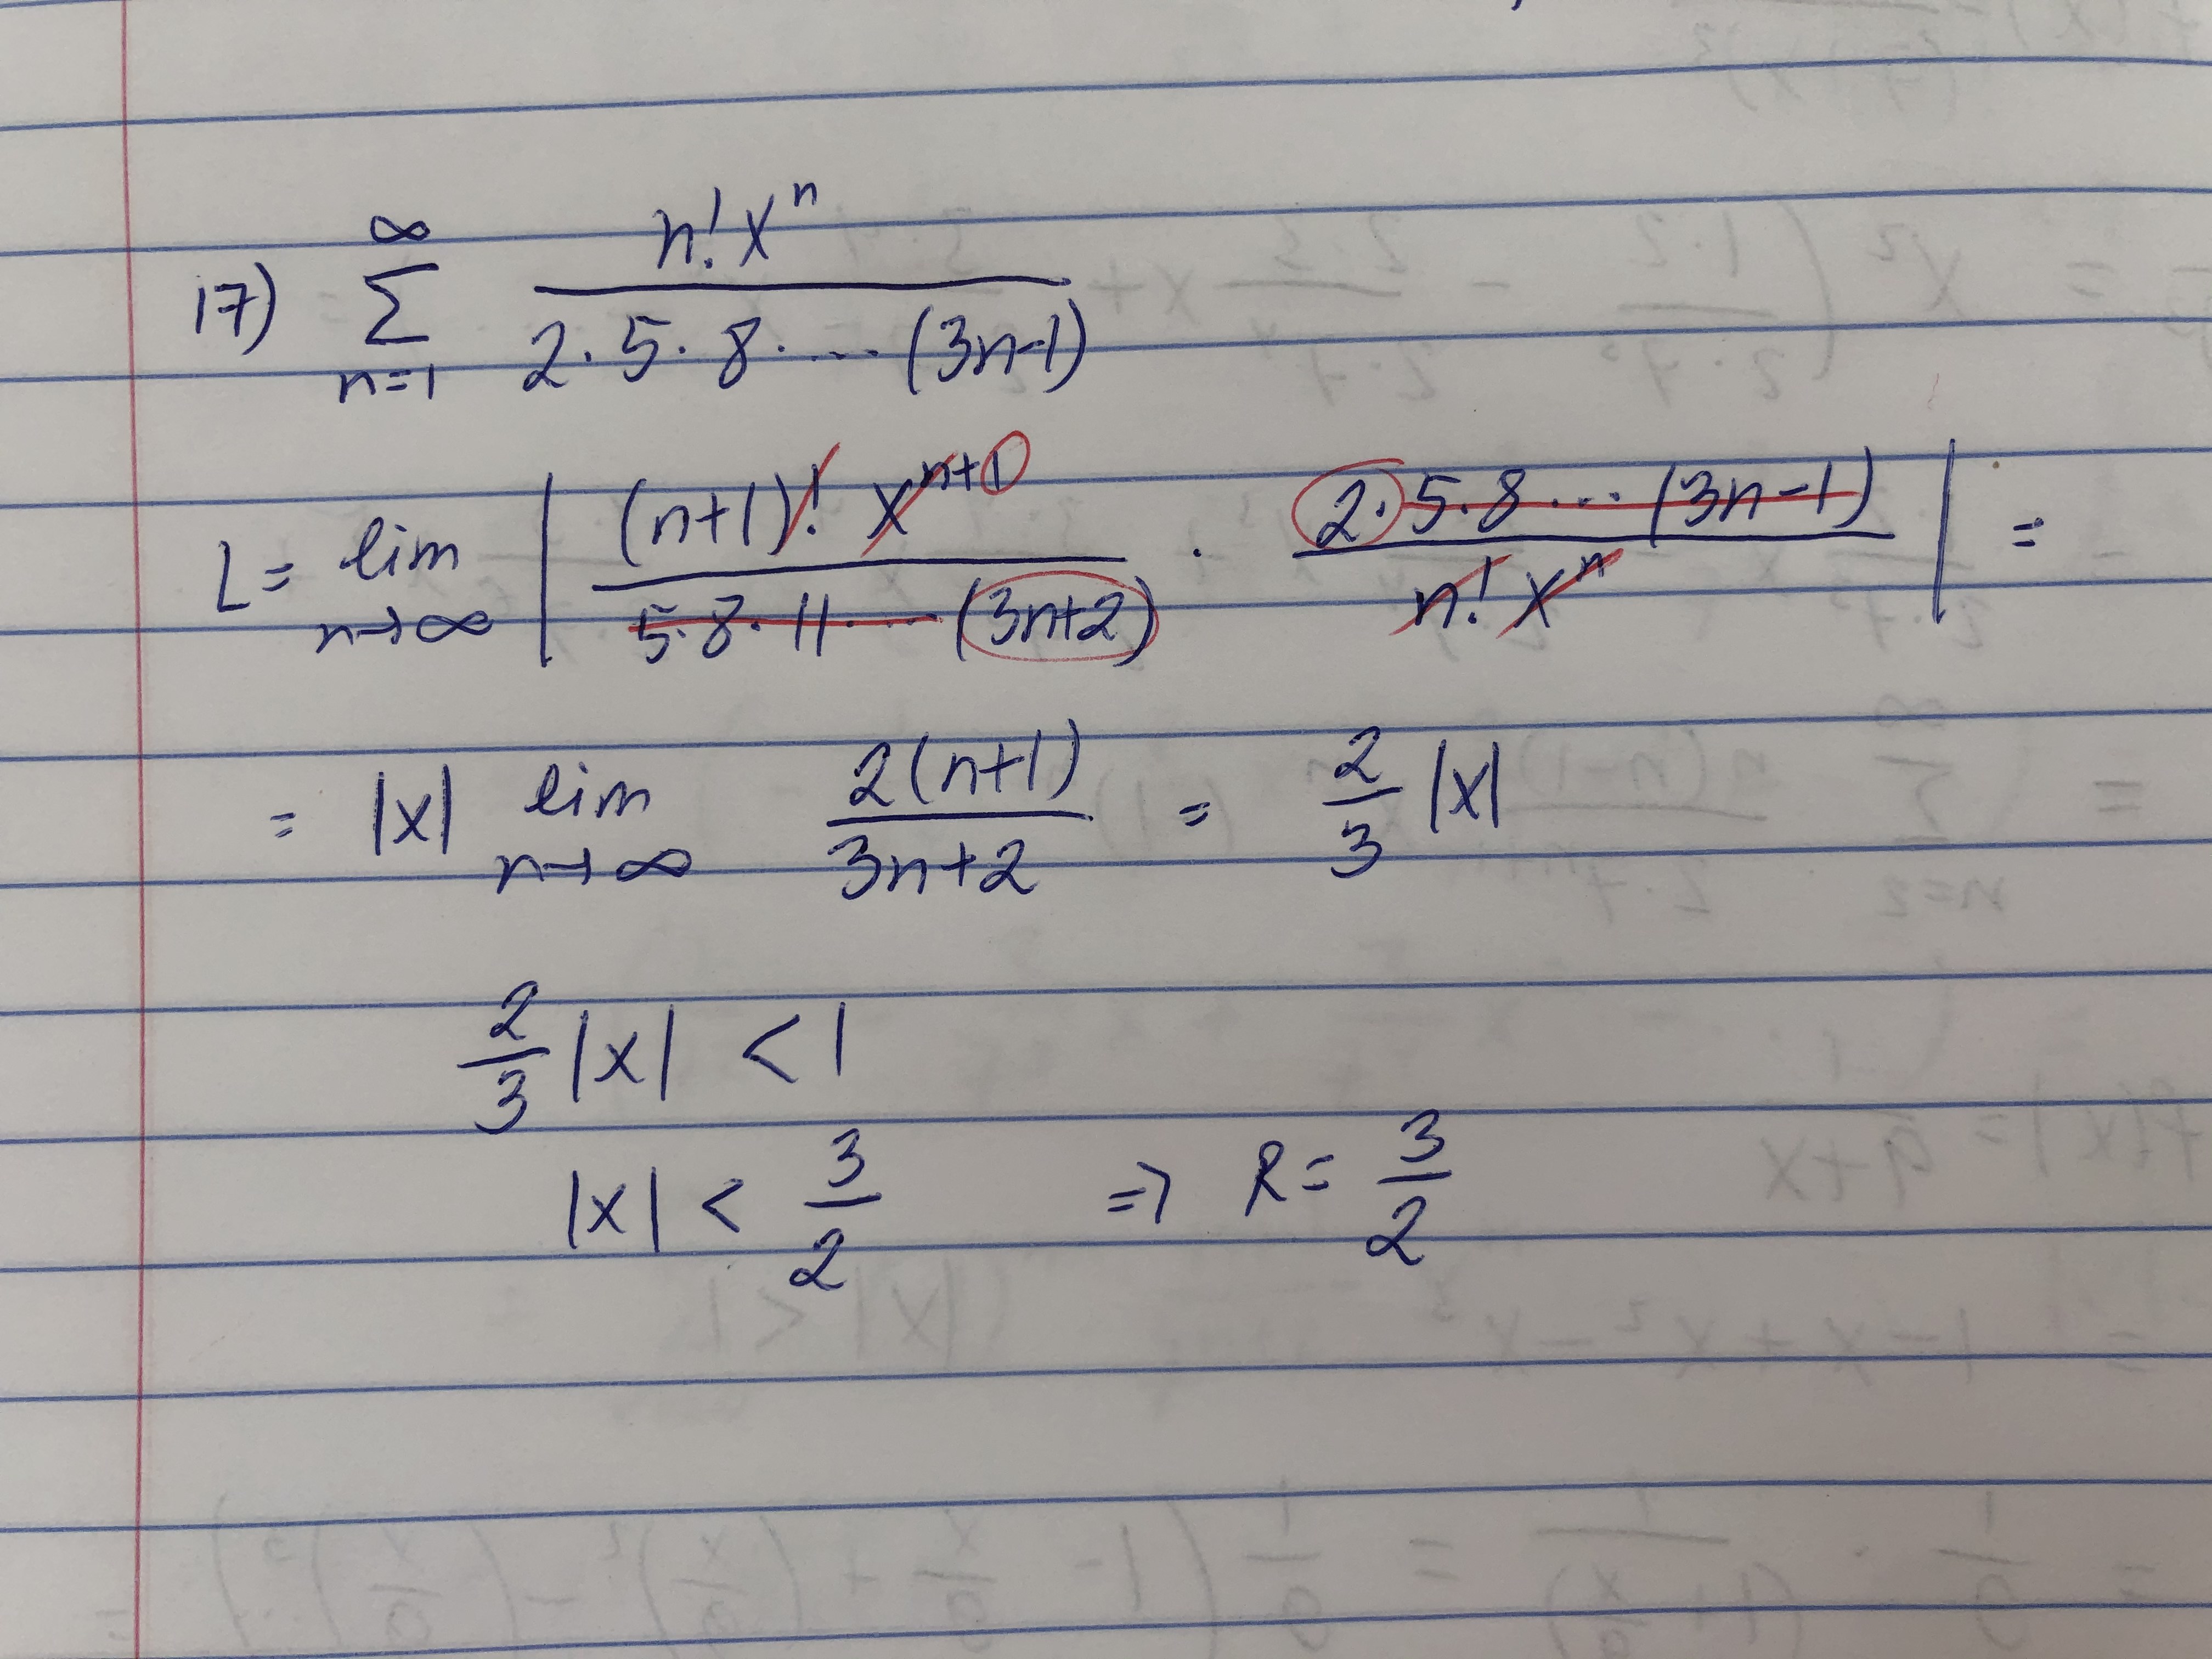 17) ∑_{n=1}^{∞} \frac{n! x^n}{2·5·8·...(3n-1)}
L = lim_{n→∞} | \frac{(n+1)! x^{n+1}}{5·8·11·...(3n+2)} · \frac{2·5·8·...(3n-1)}{n! x^n} | =
= |x| lim_{n→∞} \frac{2(n+1)}{3n+2} = \frac{2}{3} |x|
\frac{2}{3} |x| < 1
|x| < \frac{3}{2} ⇒ R = \frac{3}{2}